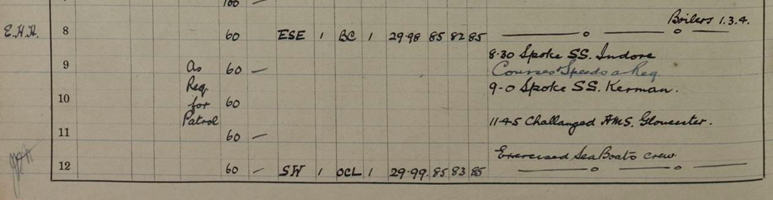 100 —
Boilers 1.3.4.
E.H.H. 8 60 ESE 1 BC 1 29.98 85 82 85 — o — o —
8.30 Spoke SS. Indore
9 As 60 — Courses & Speeds a Req
Req 9-0 Spoke SS. Kerman.
10 for 60
Patrol 11.45 Challanged HMS. Gloucester.
11 60 —
Exercised Sea Boats crew
12 60 — SW 1 OCL 1 29.99. 85 83 85 — o — o —